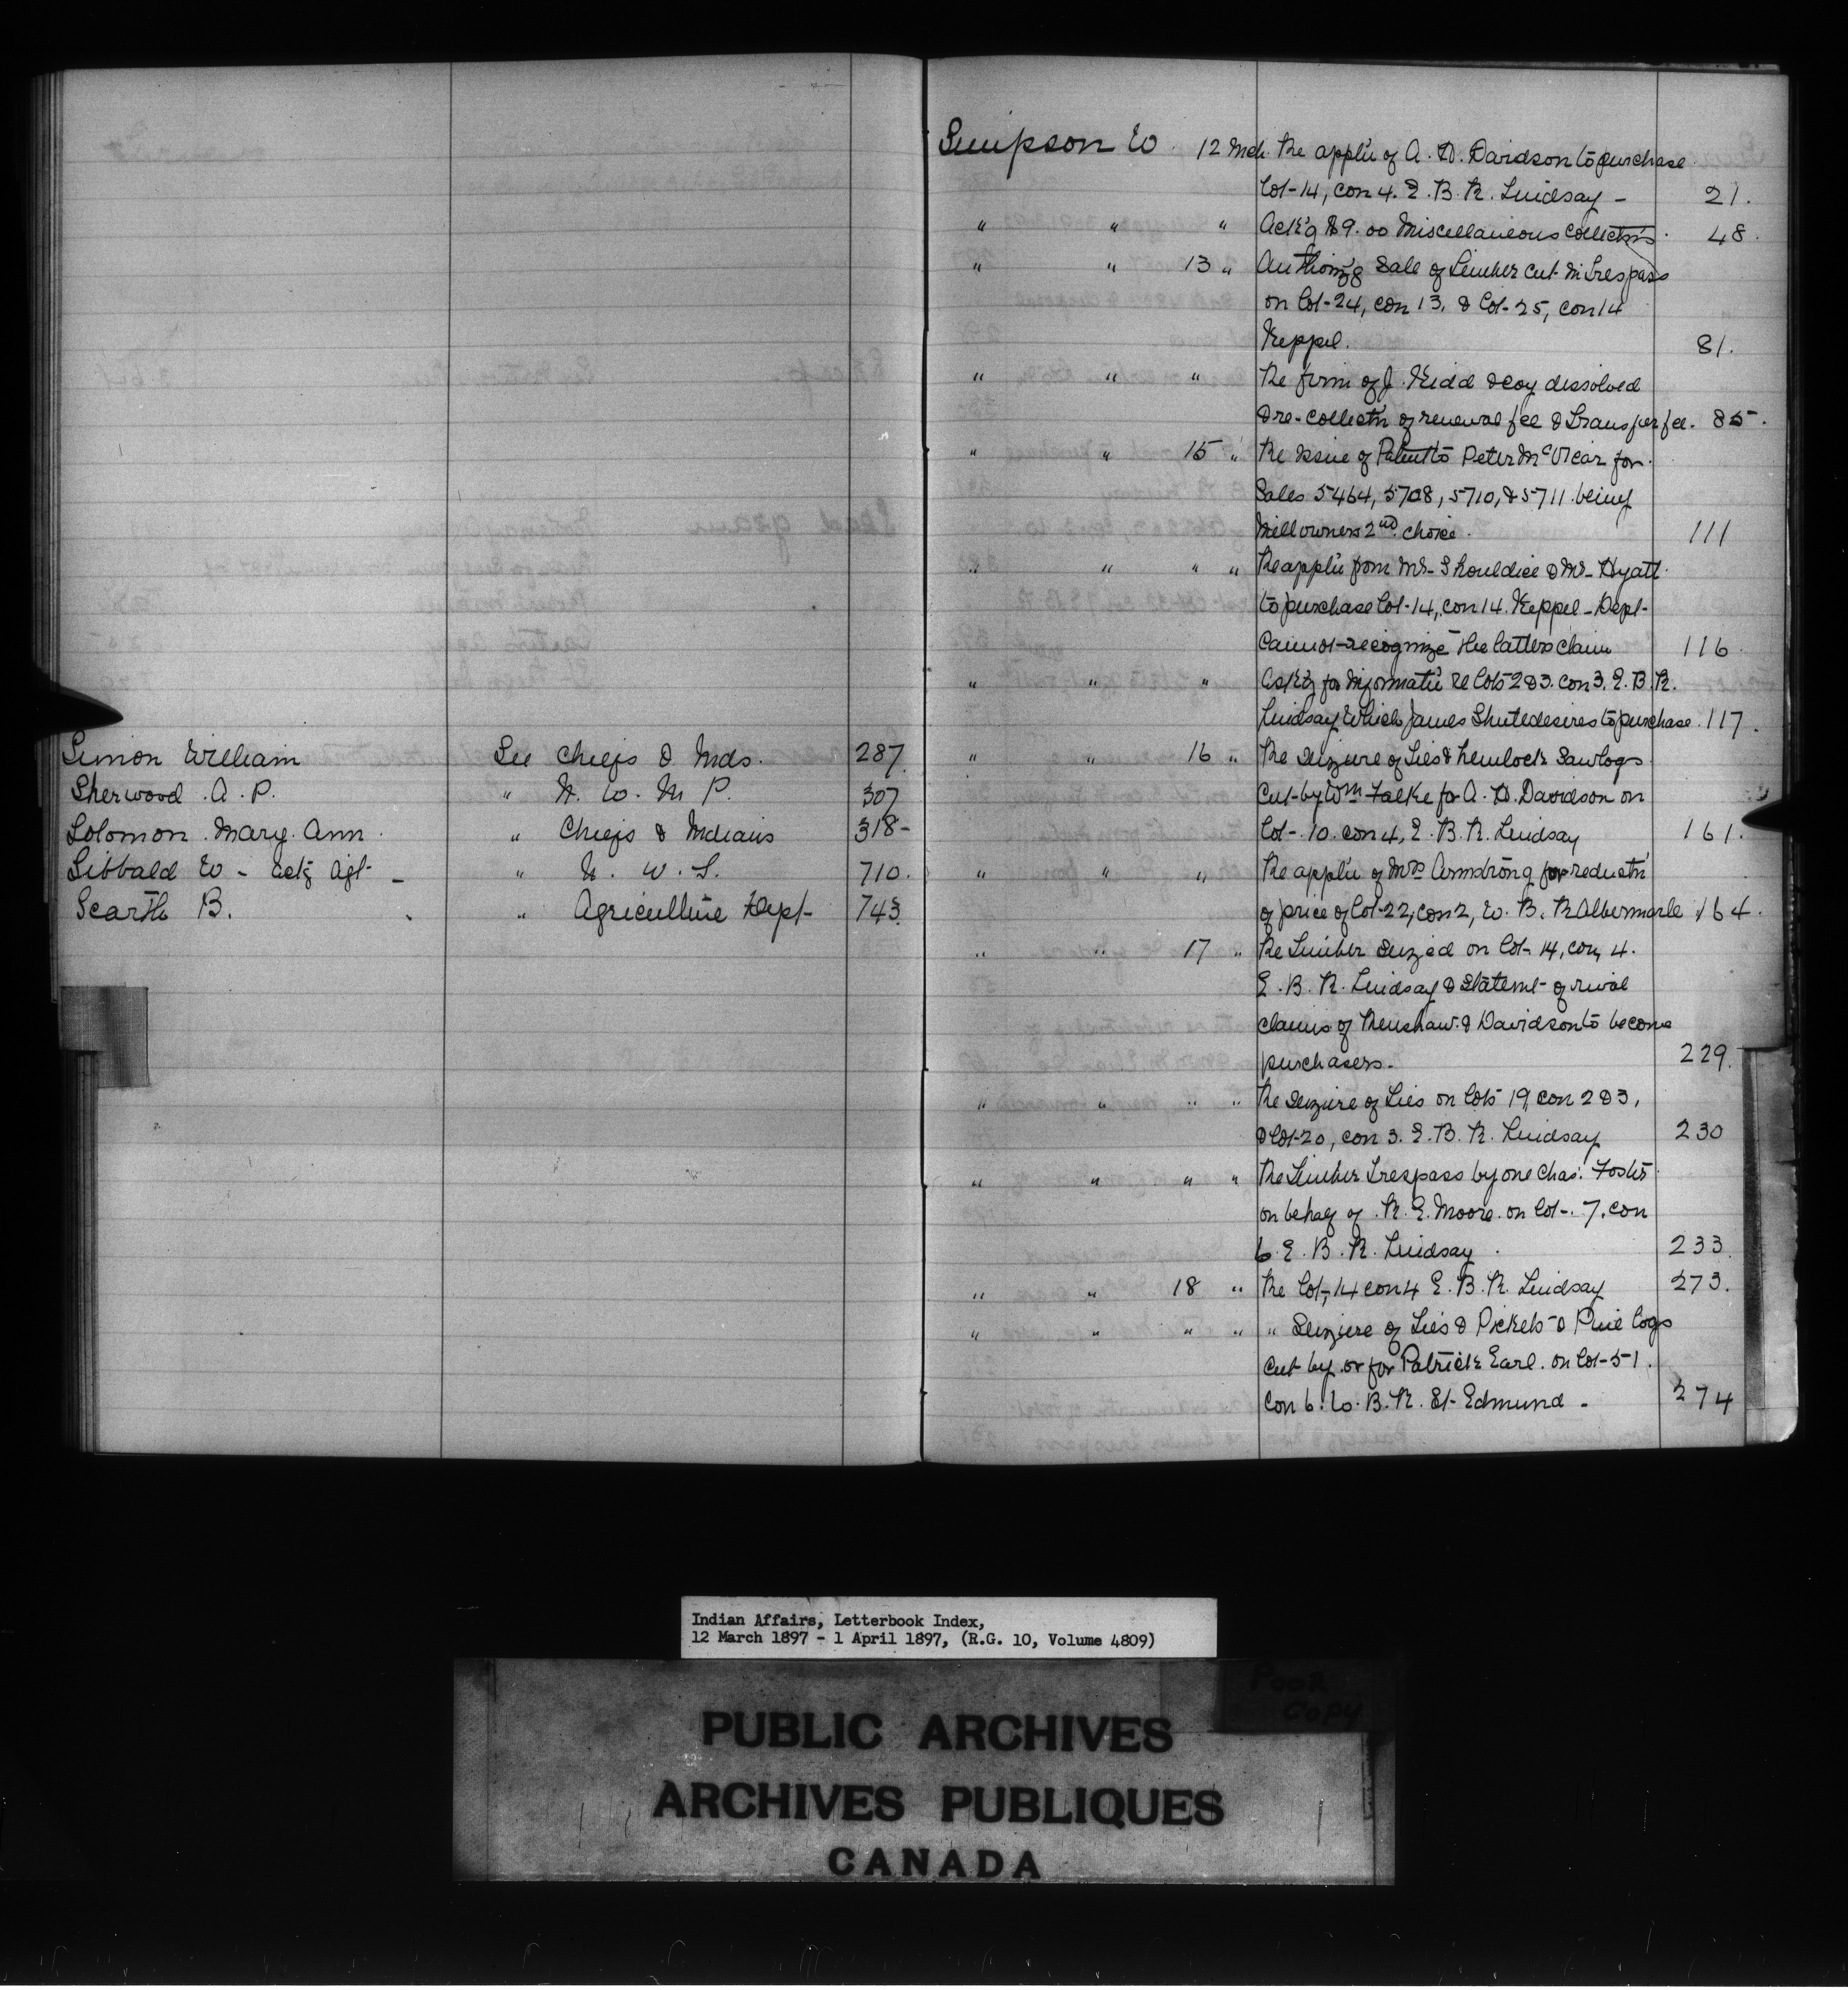 Simon William See Chiefs & Inds. 287
Sherwood A. P. " N. W. M. P. 307
Solomon Mary Ann " Chiefs & Indians 318
Sibbald W - Actg Agt - " N. W. T. 710.
Scarth B. " Agriculture Dept 743
Simpson W 12 Mch. Re applic of A. D. Davidson to purchase
lot 14, con 4. E. B. R. Lindsay - 21.
" " " Ack'g $9.00 Miscellaneous Collectns. 48.
" " 13 " Authoriz'g Sale of timber cut in trespass
on lot 24, con 13, & lot 25, con 14
Keppel. 81.
" " " Re firm of J. Kidd & Coy dissolved
& re-collectn of renewal fee & Transfer fee. 85.
" " 15 " Re issue of Patent to Peter McVicar for
Sales 5464, 5708, 5710, & 5711 being
Mill owners 2nd choice. 111
" " " " Re applic from Mr Shouldice & Mr Hyatt
to purchase lot 14, con 14. Keppel - Dept
Cannot recognize the latters claim 116
" " " Ask'g for informatn re lots 2 & 3. con 3. E. B. R.
Lindsay which James Shute desires to purchase. 117.
" " 16 " Re Seizure of ties & hemlock Sawlogs
cut by Wm Falke for A. D. Davidson on
lot 10. con 4, E. B. R. Lindsay 161.
" " " Re applic of Mrs Armstrong for reductn
of price of lot 22, con 2, W. B. R Albermarle 164.
" " 17 " Re timber Seized on lot 14, con 4.
E. B. R. Lindsay & Statemt of rival
claims of Renshaw & Davidson to become
purchasers. 229.
" " " " Re Seizure of ties on lots 19, con 2 & 3,
& lot 20, con 3. E. B. R. Lindsay 230
" " " " Re timber trespass by one Chas. Foster
on behalf of R. E. Moore on lot 7, con
6 E. B. R. Lindsay. 233.
" " 18 " Re lot 14 con 4 E. B. R. Lindsay 273.
" " " " " Seizure of ties & Pickets & Pine logs
cut by or for Patrick Earl. on lot 51.
Con 6. W. B. R. St Edmund. 274
Indian Affairs, Letterbook Index,
12 March 1897 - 1 April 1897, (R.G. 10, Volume 4809)
Poor
Copy
PUBLIC ARCHIVES
ARCHIVES PUBLIQUES
CANADA